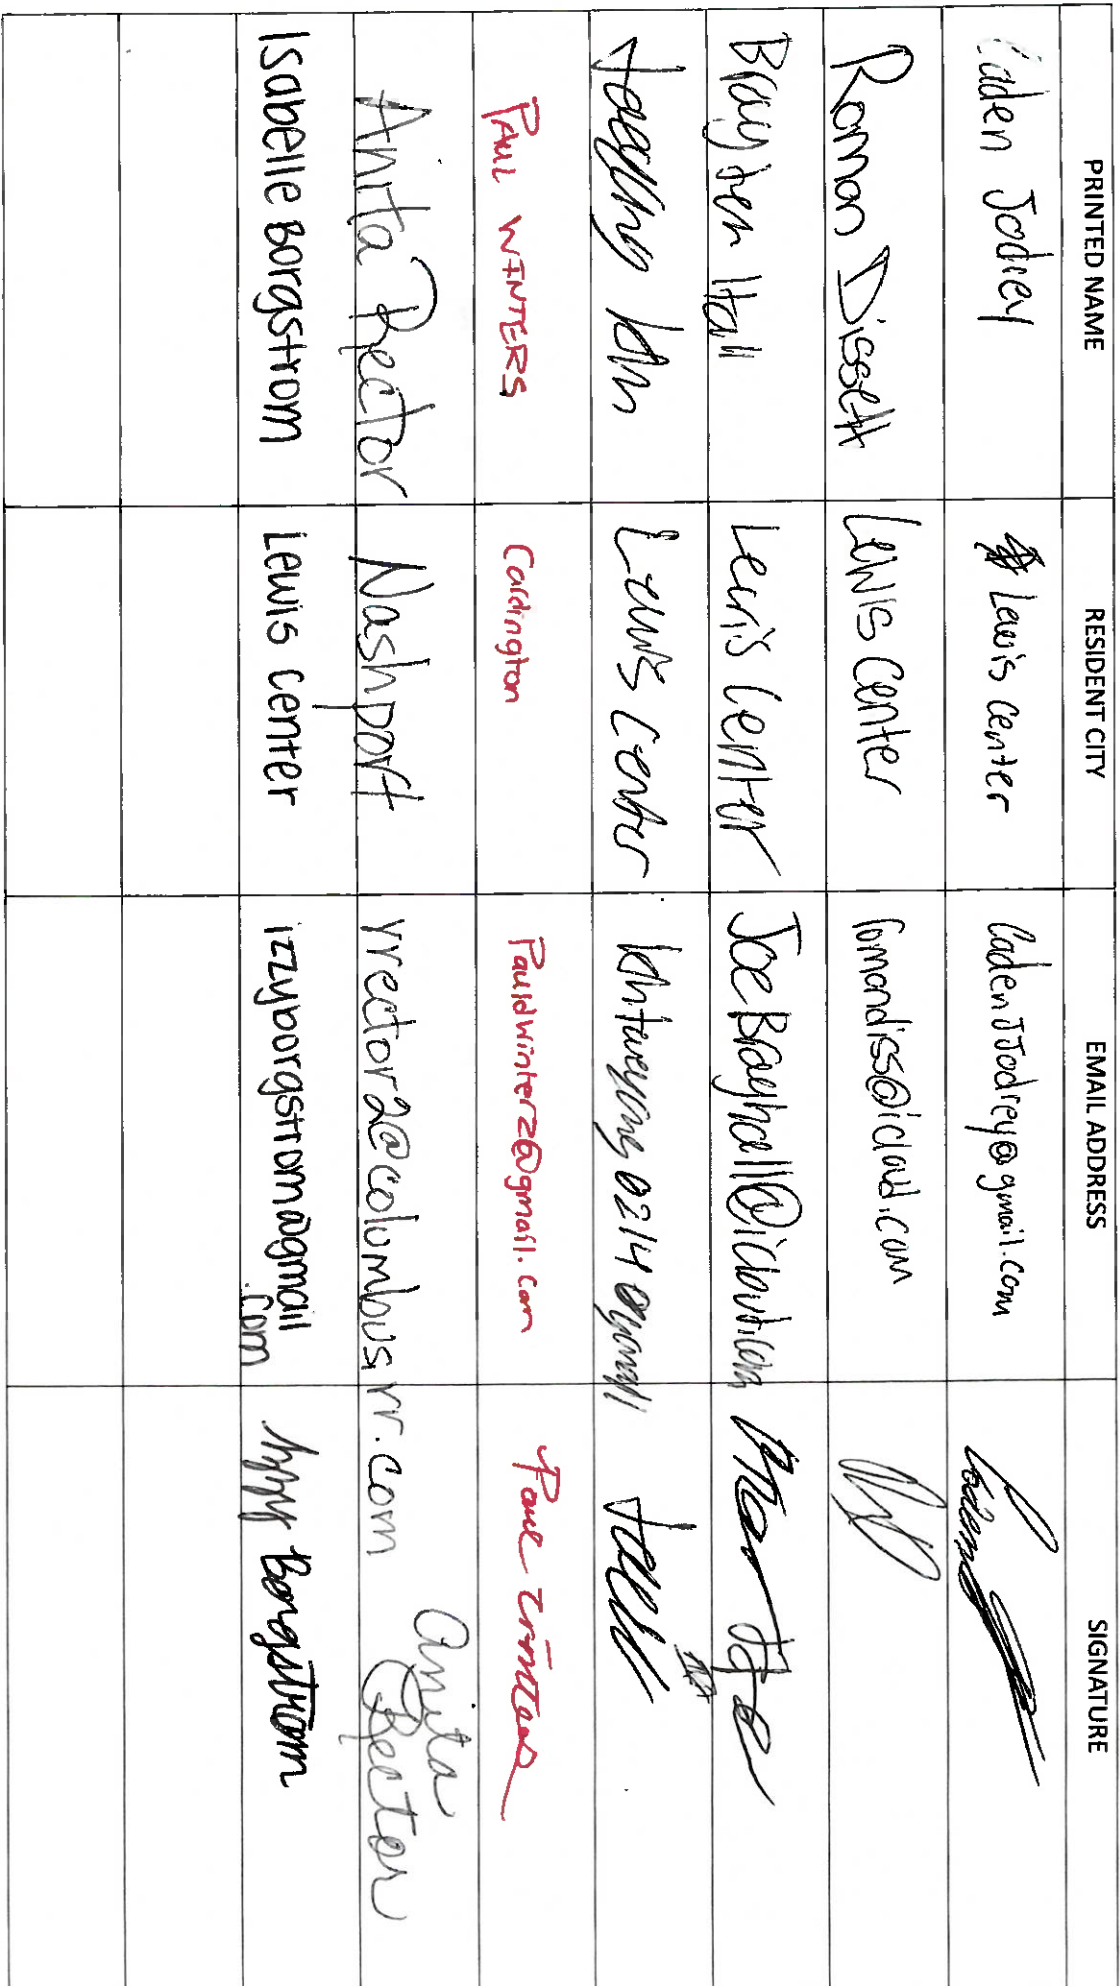 PRINTED NAME RESIDENT CITY EMAIL ADDRESS SIGNATURE
Caden Jodrey Lewis Center CadenJJodrey@gmail.com
Roman Dissett Lewis Center romandiss@icloud.com
Brayden Hall Lewis Center JoeBrayhall@icloud.com
Lewis Center
PAUL WINTERS Cardington Pauldwinterz@gmail.com Paul Winters
Anita Rector Nashport vrector2@columbus.rr.com Anita Rector
Isabelle Borgstrom Lewis Center izzyborgstrom@gmail.com Izzy Borgstrom